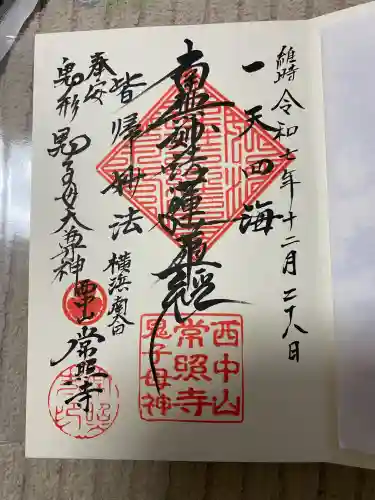 維時 令和七年十二月二十八日
一天四海
南無妙法蓮華経
皆帰妙法
横浜 南太田
奉安
鬼形 鬼子母大尊神
西中山 常照寺
西中山
常照寺
鬼子母神